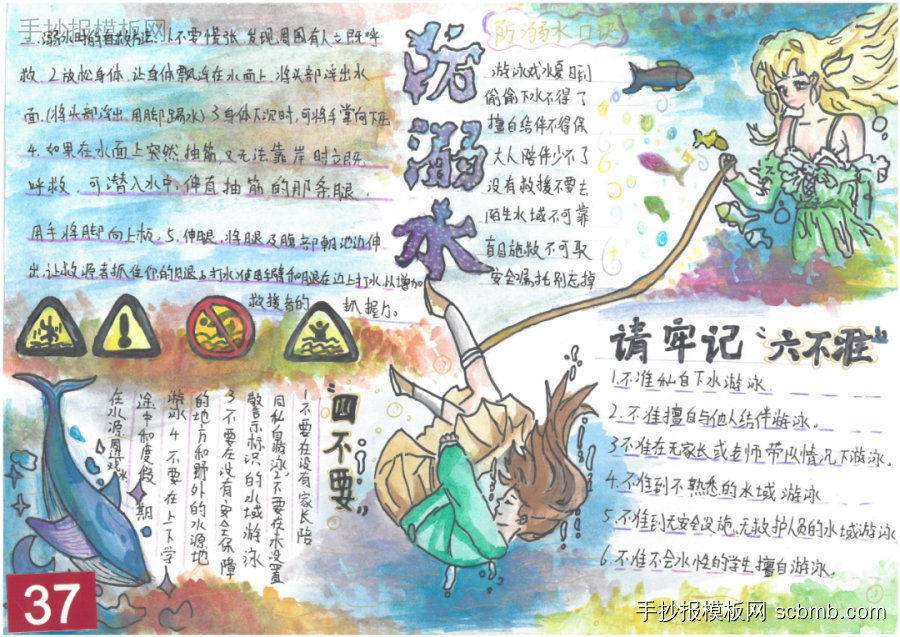 手抄报模板网
一.溺水时的自救方法:1.不要慌张,发现周围有人立即呼
救 2.放松身体,让身体飘浮在水面上,将头部浮出水
面.(将头部浮出 用脚踢水) 3.身体下沉时,可将手掌向下压
4.如果在水面上突然抽筋,又无法靠岸时立即
呼救,可潜入水中,伸直抽筋的那条腿,
用手将脚向上板。5.伸腿,将腿及腹部朝池边伸
出,让救源者抓住你的
救援者的 抓握力。
防溺水
防溺水口诀
游泳戏水夏日到
偷偷下水不得了
擅自结伴不得保
大人陪伴少不了
没有救援不要去
陌生水域不可靠
盲目施救不可取
安全嘱托别忘掉
"四不要"
1不要在没有家长陪
同私自游泳2不要在未设置
警示标识的水域游泳
3不要在没有安全保障
的地方和野外的水源地
游泳4不要在上下学
途中和度假期
在水源周
请牢记"六不准"
1.不准私自下水游泳.
2.不准擅自与他人结伴游泳。
3不准在无家长或老师带队情况下游泳.
4.不准到不熟悉的水域游泳
5.不准到无安全设施,无救护人员的水域游泳
6.不准不会水性的学生擅自游泳.
37
手抄报模板网 scbmb.com